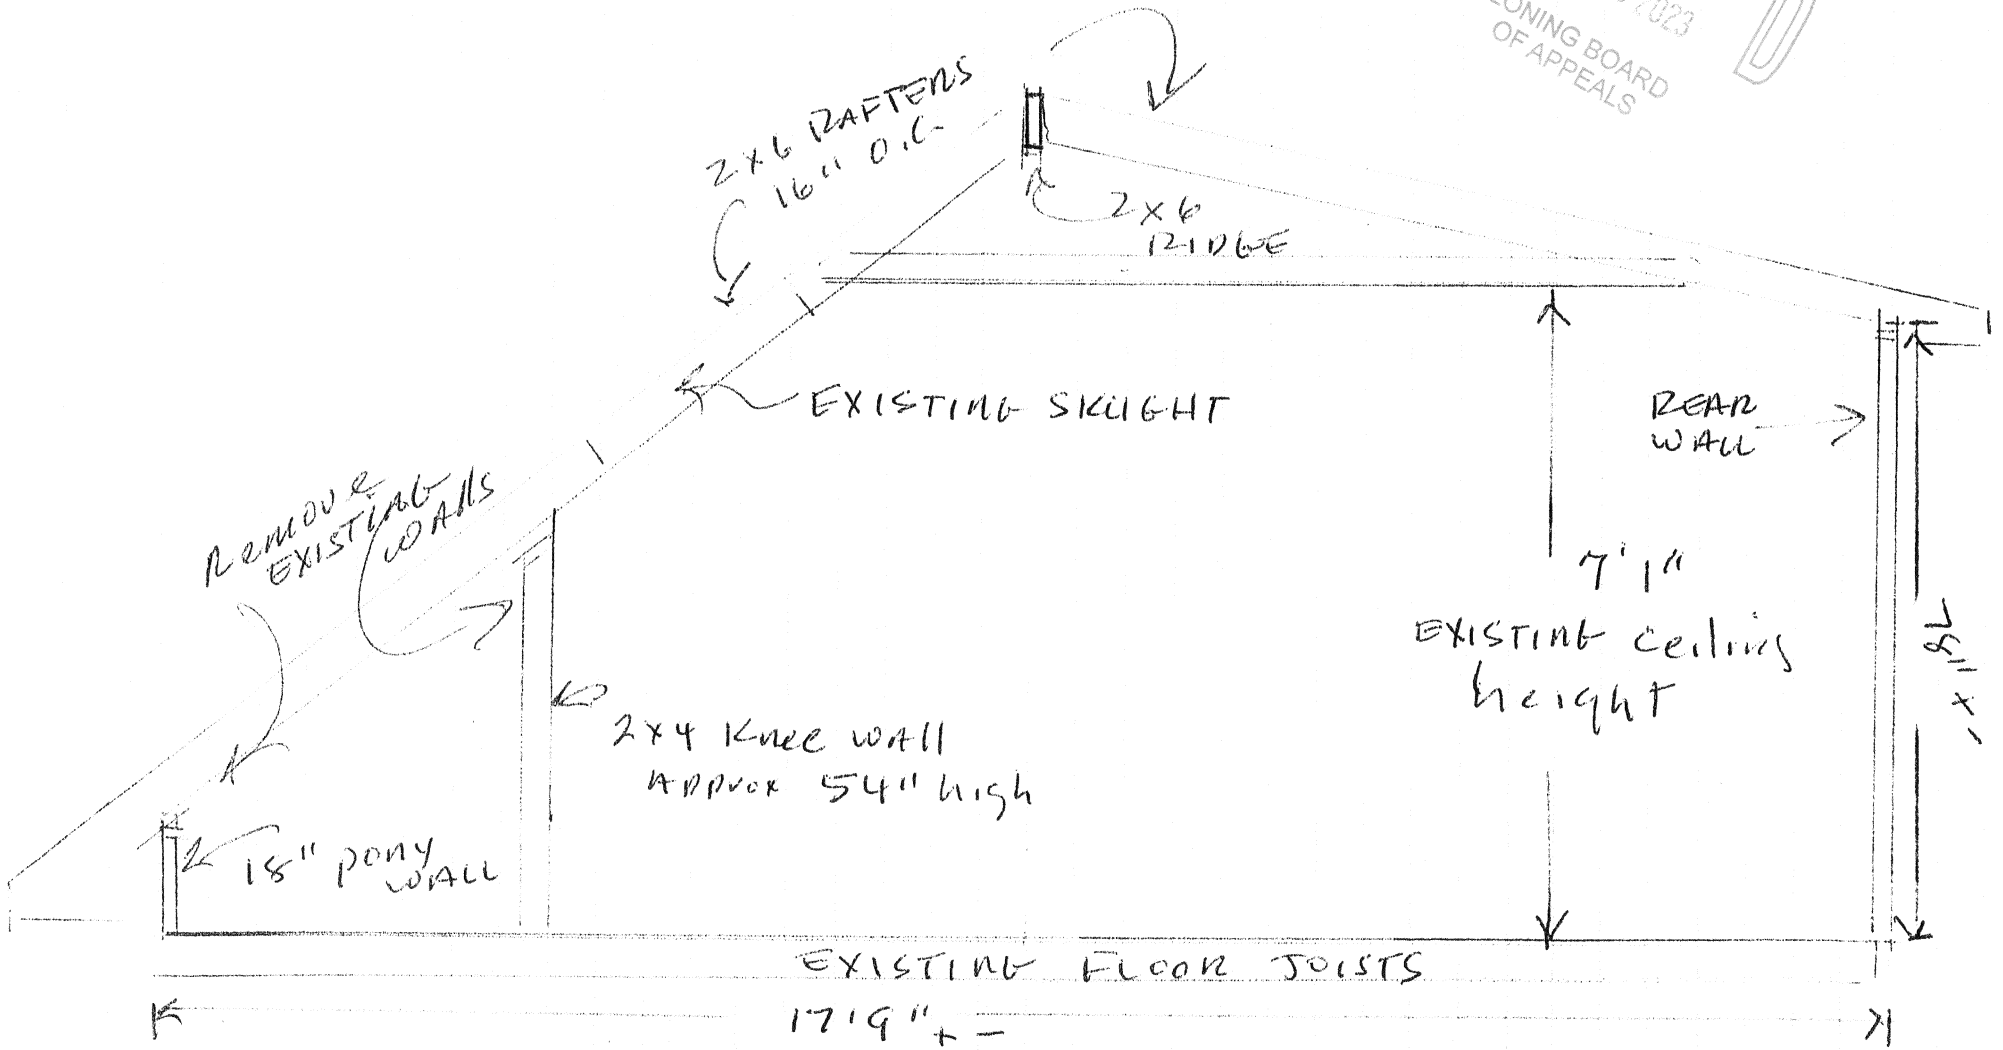 2023
ZONING BOARD
OF APPEALS
D
2x6 RAFTERS
16" O.C.
2x6
RIDGE
EXISTING SKLIGHT
REAR
WALL
Remove
EXISTING
WAlls
7'1"
EXISTING Ceiling
height
2x4 Knee WAll
Approx 54" high
18" pony
WALL
EXISTING FLOOR JOISTS
17'9" + -